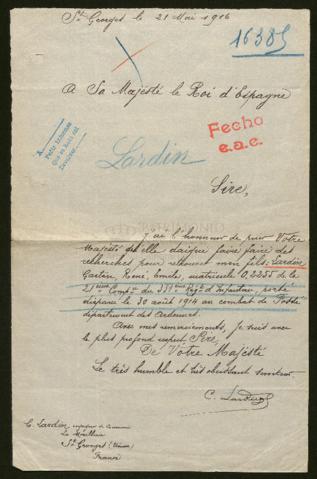 St Georges le 21 Mai 1916
16385
A Sa Majesté le Roi d'Espagne
Fecho
e.a.c.
Lardin
Sire,
J'ai l'honneur de prier Votre
Majesté qu'elle daigne faire faire des
recherches pour retrouver mon fils: Lardin
Gaston, René, Emile, matricule 0,2255 de la
21ème Compie du 351ème Régt d'Infanterie, porté
disparu le 30 août 1914 au combat de
département des Ardennes.
Avec mes remerciements, je suis avec
le plus profond respect, Sire,
De Votre Majesté
Le très humble et très obéissant serviteur
C. Lardin
C. Lardin,
St Georges
France